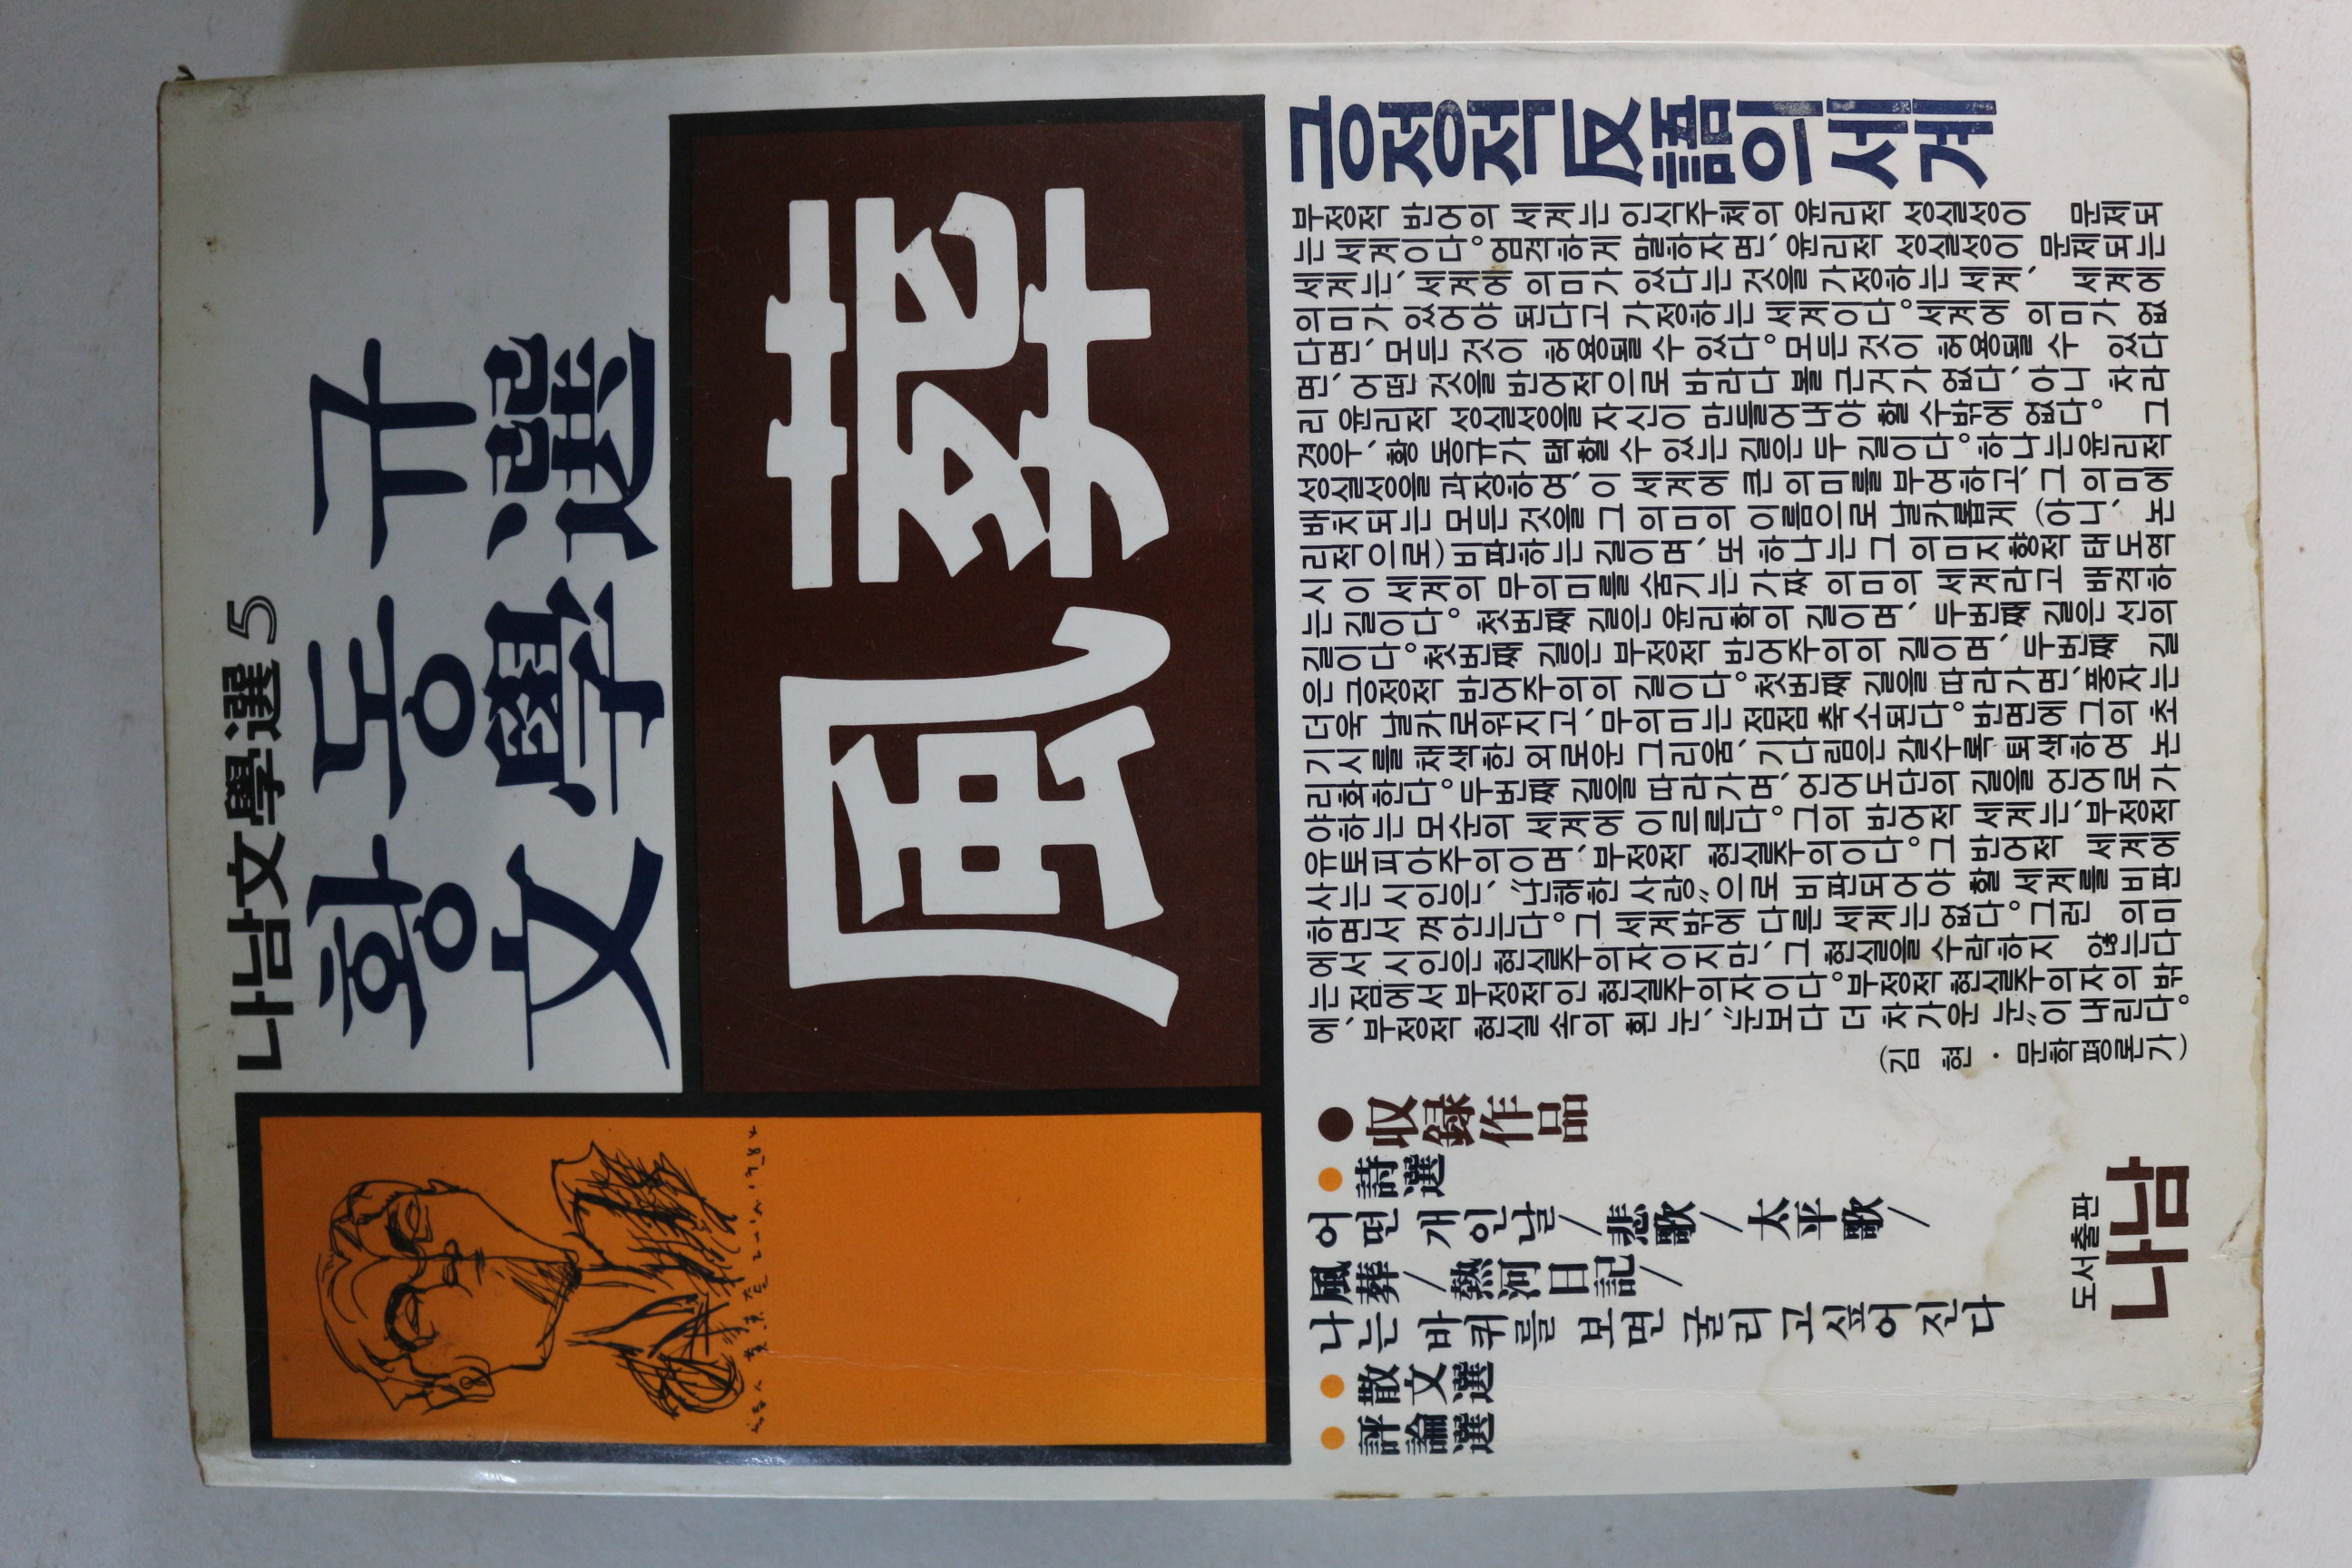 나남文學選 5
황동규
文學選
風葬
긍정적 反語의 세계
부정적 반어의 세계는 인식주체의 윤리적 성실성이 문제되
는 세계이다. 엄격하게 말하자면, 윤리적 성실성이 문제되는
세계는, 세계에 의미가 있다는 것을 가정하는 세계, 세계에
의미가 있어야 된다고 가정하는 세계이다. 세계에 의미가 없
다면, 모든 것이 허용될 수 있다. 모든 것이 허용될 수 있다
면, 어떤 것을 반어적으로 바라다 볼 근거가 없다, 아니 차라
리 윤리적 성실성을 자신이 만들어내야 할 수밖에 없다. 그
경우, 황 동규가 택할 수 있는 길은 두 길이다. 하나는 윤리적
성실성을 과장하여, 이 세계에 큰 의미를 부여하고, 그 의미에
배치되는 모든 것을 그 의미의 이름으로 날카롭게 (아니, 논
리적으로) 비판하는 길이며, 또 하나는 그 의미지향적 태도역
시 이 세계의 무의미를 숨기는 가짜 의미의 세계라고 배격하
는 길이다. 첫번째 길은 윤리학의 길이며, 두번째 길은 선의
길이다. 첫번째 길은 부정적 반어주의의 길이며, 두번째 길
은 긍정적 반어주의의 길이다. 첫번째 길을 따라가면, 풍자는
더욱 날카로워지고, 무의미는 점점 축소된다. 반면에 그의 초
기시를 채색한 외로운 그리움, 기다림은 갈수록 퇴색하여 논
리화한다. 두번째 길을 따라가며, 언어도단의 길을 언어로 가
야 하는 모순의 세계에 이르른다. 그의 반어적 세계는, 부정적
유토피아주의이며, 부정적 현실주의이다. 그 반어적 세계에
사는 시인은, “난해한 사랑”으로 비판되어야 할 세계를 비판
하면서 껴안는다. 그 세계밖에 다른 세계는 없다. 그런 의미
에서 시인은 현실주의자이지만, 그 현실을 수락하지 않는다
는 점에서 부정적인 현실주의자이다. 부정적 현실주의자의 밖
에, 부정적 현실 속의 흰 눈, “눈보다 더 차가운 눈”이 내린다.
(김 현·문학평론가)
●収録作品
●詩選
어떤 개인날／悲歌／太平歌／
風葬／熱河日記／
나는 바퀴를 보면 굴리고싶어 진다
●散文選
●評論選
도서출판
나남